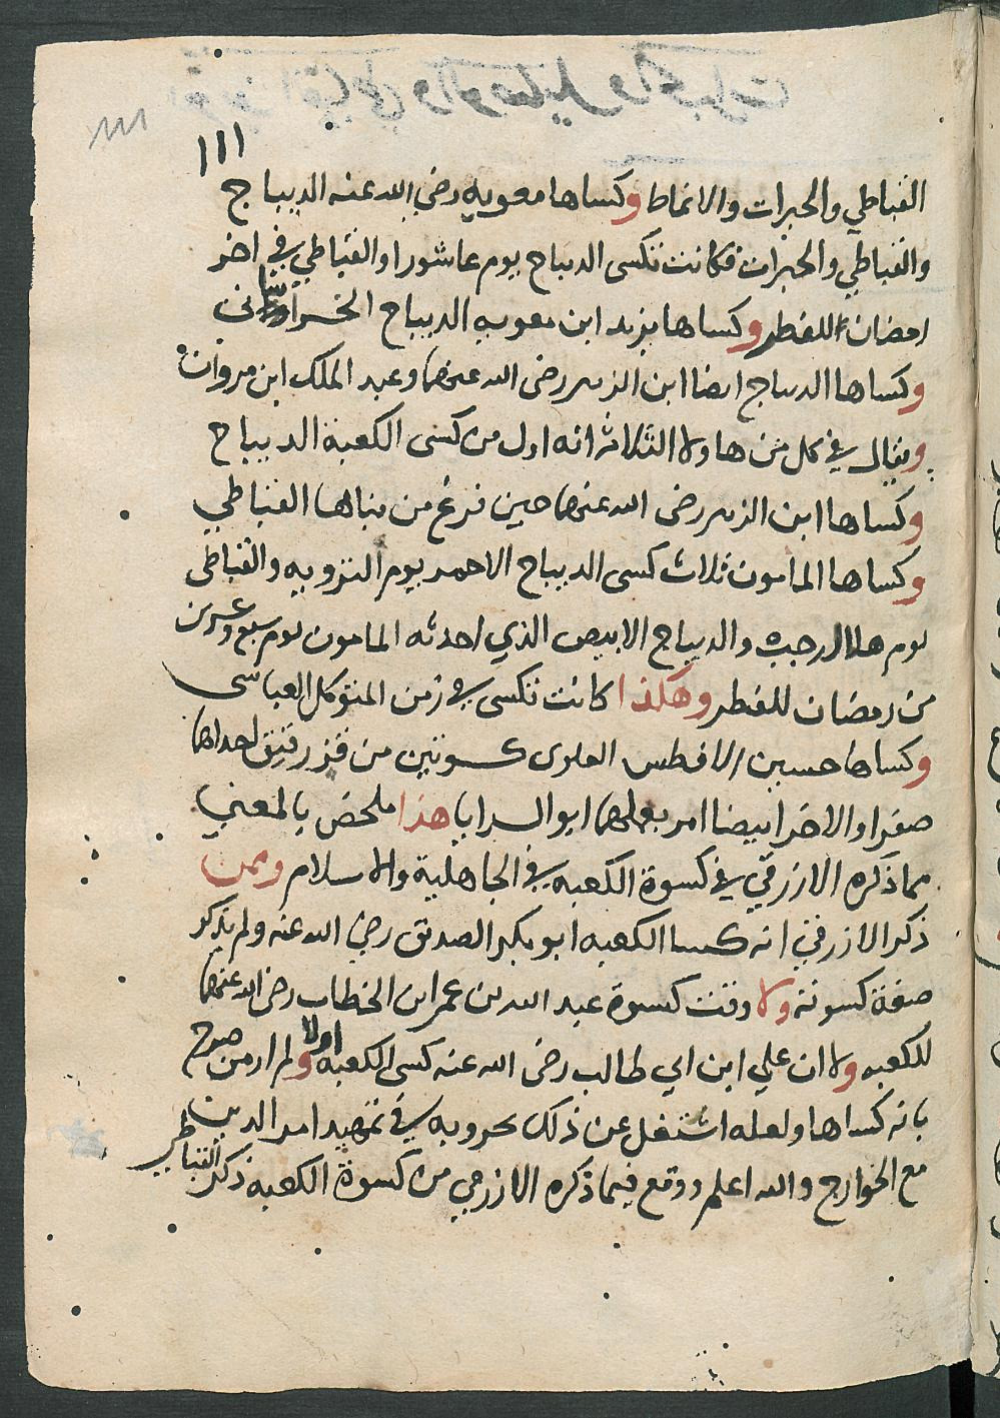 ١١١
القباطي والحبرات والانماط وكساها معويه رضي الله عنه الديباج
والقباطي والحبرات فكانت تكسى الديباج يوم عاشورا والقباطي في اخر
رمضان للفطر وكساها يزيد ابن معويه الديباج الخسرواني
وكساها الديباج ايضا ابن الزبير رضى الله عنهما وعبد الملك ابن مروان
ويقال في كل من هاولا الثلاثه انه اول من كسى الكعبة الديباج
وكساها ابن الزبير رضى الله عنهما حين فرغ من بنائها القباطي
وكساها المامون ثلاث كسى الديباج الاحمر يوم الترويه والقباطى
يوم هلال رجب والديباج الابيض الذي احدثه المامون يوم سبع وعشرين
من رمضان للفطر وهكذا كانت تكسى في زمن المتوكل العباسى
وكساها حسين الافطس العلوى كسوتين من قز رقيق احداهما
صفرا والاخرا بيضا امر بعملهما ابو السرايا هذا ملخص بالمعني
مما ذكره الازرقي في كسوة الكعبه في الجاهلية والاسلام وممن
ذكر الازرقي انه كسا الكعبه ابو بكر الصديق رضي الله عنه ولم يذكر
صفة كسوته ولا وقت كسوة عبد الله بن عمر ابن الخطاب رضى الله عنهما
للكعبه ولا ان علي ابن ابي طالب رضى الله عنه كسى الكعبه اولا ولم ار من صرح
بانه كساها ولعله اشتغل عن ذلك بحروبه في تمهيد امر الدين
مع الخوارج والله اعلم ووقع فيما ذكره الازرقي من كسوة الكعبه ذكر القباطي